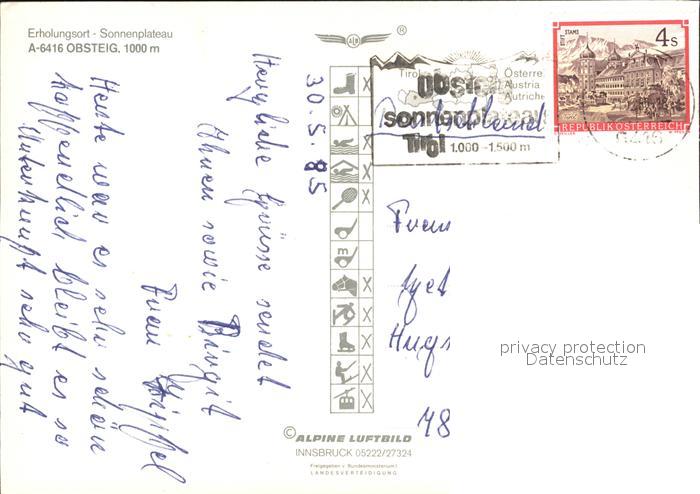 Erholungsort - Sonnenplateau
A-6416 OBSTEIG, 1000 m
30.5.85
Herzliche Grüsse sendet
Ihnen sowie Birgit
Frau
Heute war es sehr schön
hoffendlich bleibt es so
Unterkunft sehr gut
ALM
R
m
X
X
X
X
X
X
X
X
X
X
Tirol
Österre
Austria
Autriche
Obst
sonnenplateau
Tirol 1.000-1.500 m
Deutschland
STIFT STAMS
4 S
REPUBLIK ÖSTERREICH
Frau
Hugs
48
privacy protection
Datenschutz
© ALPINE LUFTBILD
INNSBRUCK 05222/27324
Freigegeben v. Bundesministerium f.
LANDESVERTEIDIGUNG